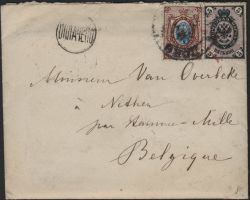 Monsieur Van Overbeke
à Nethen
par Hamme-Mille
Belgique